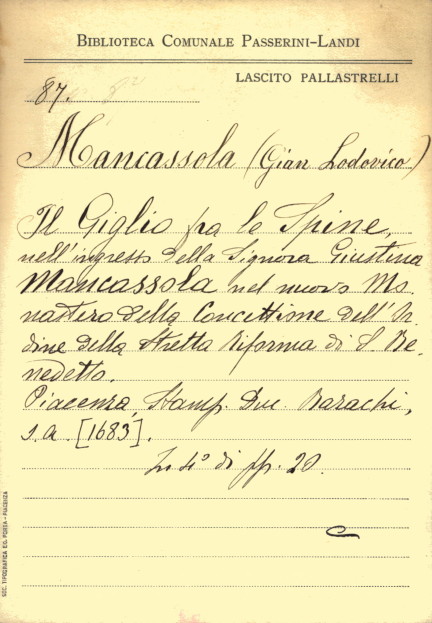 BIBLIOTECA COMUNALE PASSERINI-LANDI
LASCITO PALLASTRELLI
87.
Mancassola (Gian Lodovico)
Il Giglio fra le Spine,
nell'ingresso della Signora Giustina
Mancassola nel nuovo Mo-
nastero della Concettione dell'Or-
dine della Stretta Riforma di S. Be-
nedetto.
Piacenza, Stamp. Duc. Bazachi,
s.a. [1683].
In 4° di pp. 20.
SOC. TIPOGRAFICA ED. PORTA - PIACENZA